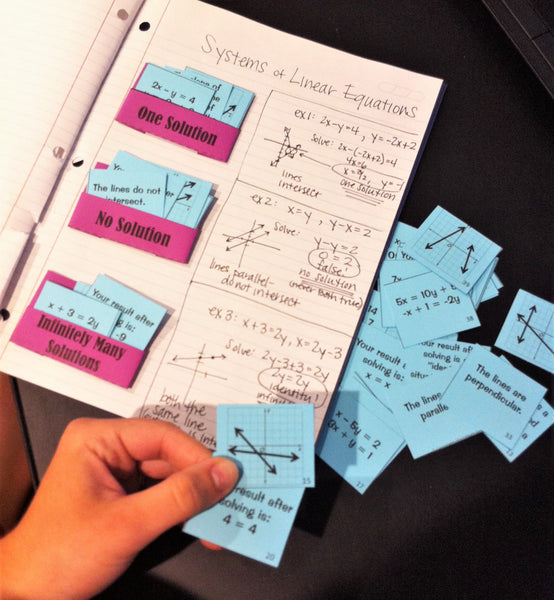 Systems of Linear Equations
2x - y = 4
One Solution
ex1: 2x-y=4, y=-2x+2
Solve: 2x-(-2x+2)=4
4x=6
x=3/2, y=-1
one solution
lines
intersect
The lines do not
ntersect.
No Solution
ex2: x=y, y-x=2
Solve:
y-y=2
0=2
false!
no solution
(never both true)
lines parallel-
do not intersect
Your result after
g is:
-9
x + 3 = 2y
Infinitely Many
Solutions
ex3: x+3=2y, x=2y-3
Solve:
2y-3+3=2y
2y=2y
identity!
infini
both the
same line
5x = 10y +
-x + 1 = -2y
38
Your result
solving is:
x = x
The lines
paralle
The lines are
perpendicular.
33
x - 5y = 2
3x + y = 1
17
25
our result after
solving is:
4 = 4
20